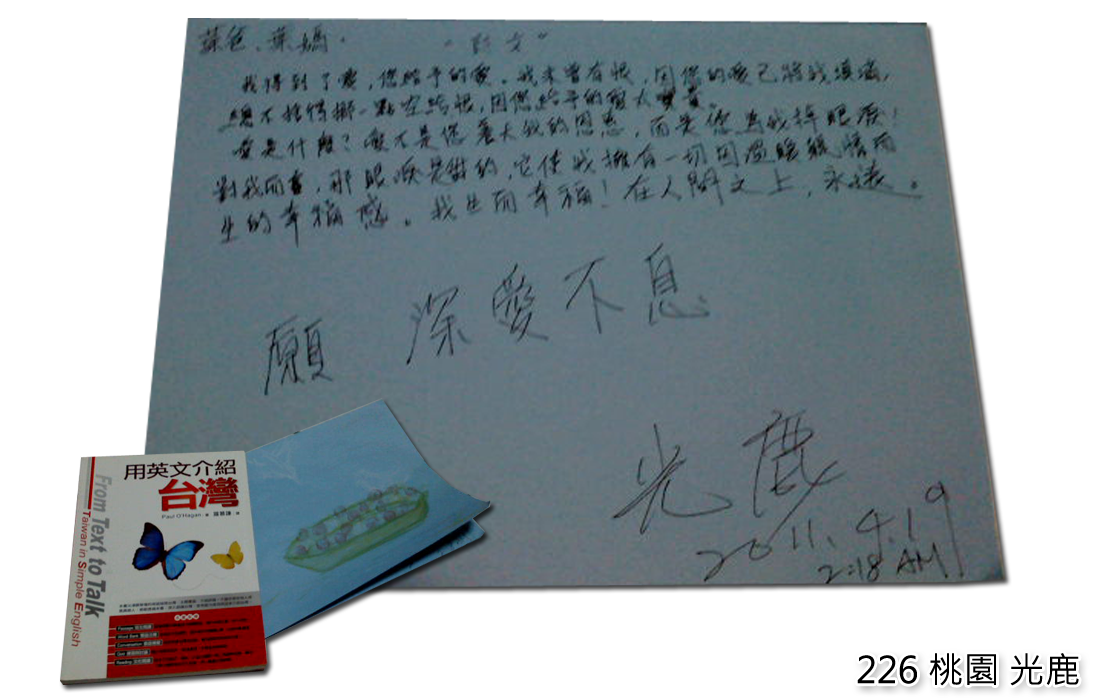 葉爸、葉媽.
我得到了愛,您給予的愛。我未曾有恨,因您的愛已將我填滿,
總不捨得挪一點空給恨,因您給予的愛太豐盛。
愛是什麼?愛不是您養大我的恩惠,而是您為我掉眼淚!
對我而言,那眼淚是甜的,它使我擁有一切因溫暖親情而
生的幸福感。我生而幸福!在人間之上,永遠。
願 深愛不息
光鹿
2011. 4.19
2:18 AM
用英文介紹
台灣
Paul O'Hagan
From Text to Talk
Taiwan in Simple English
Passage
Word Bank
Conversation
Quiz
Reading
226 桃園 光鹿